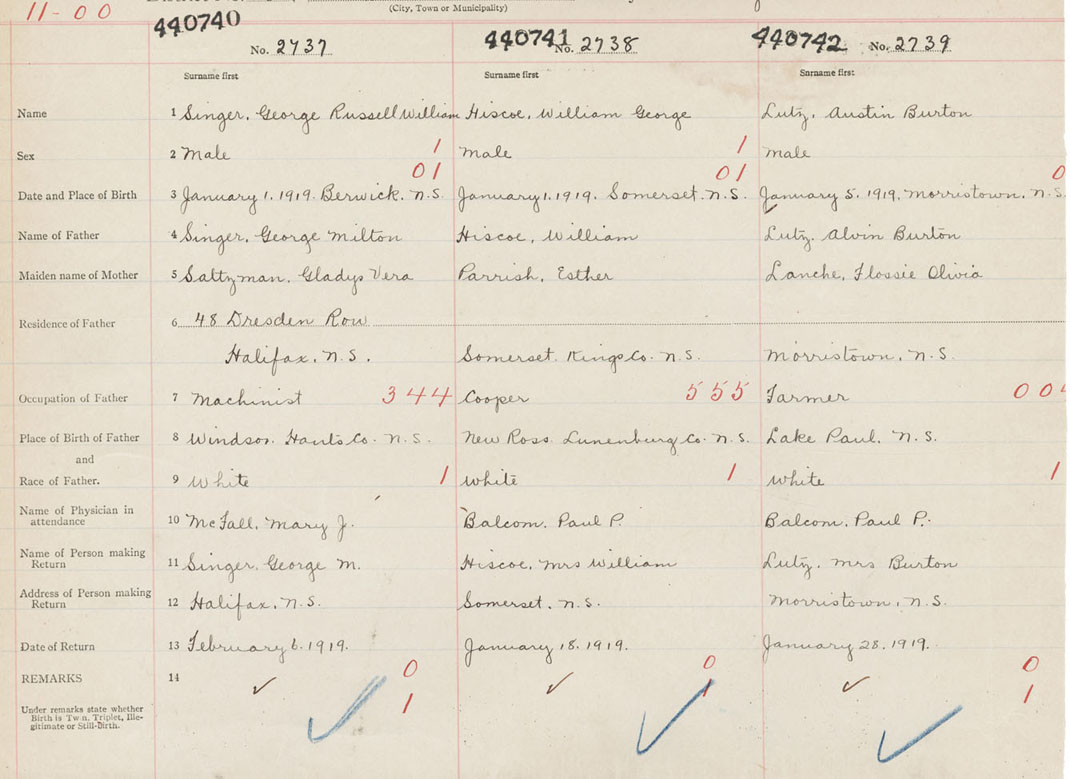 11-00
(City, Town or Municipality)
440740 440741 440742
No. 2737 No. 2738 No. 2739
Surname first Surname first Surname first
Name 1 Singer, George Russell William Hiscoe, William George Lutz, Austin Burton
Sex 2 Male 1 male 1 male
01 01 0
Date and Place of Birth 3 January 1, 1919. Berwick. N.S. January 1, 1919. Somerset. N.S. January 5, 1919, Morristown, N.S.
Name of Father 4 Singer, George Milton Hiscoe, William Lutz, Alvin Burton
Maiden name of Mother 5 Saltzman, Gladys Vera Parrish, Esther Lanche, Flossie Olivia
Residence of Father 6 48 Dresden Row
Halifax, N.S. Somerset. Kings Co. N.S. Morristown, N.S.
Occupation of Father 7 Machinist 344 Cooper 555 Farmer 00
Place of Birth of Father 8 Windsor. Hants Co. N.S. New Ross. Lunenburg Co. N.S. Lake Paul. N.S.
and
Race of Father. 9 White 1 White 1 White 1
Name of Physician in
attendance 10 McFall, Mary J. Balcom, Paul P. Balcom, Paul P.
Name of Person making
Return 11 Singer, George M. Hiscoe, Mrs William Lutz, Mrs Burton
Address of Person making
Return 12 Halifax, N.S. Somerset, N.S. Morristown, N.S.
Date of Return 13 February 6, 1919. January 18, 1919. January 28, 1919.
0 0 0
REMARKS 14
1 1 1
Under remarks state whether
Birth is Twin, Triplet, Ille-
gitimate or Still-Birth.